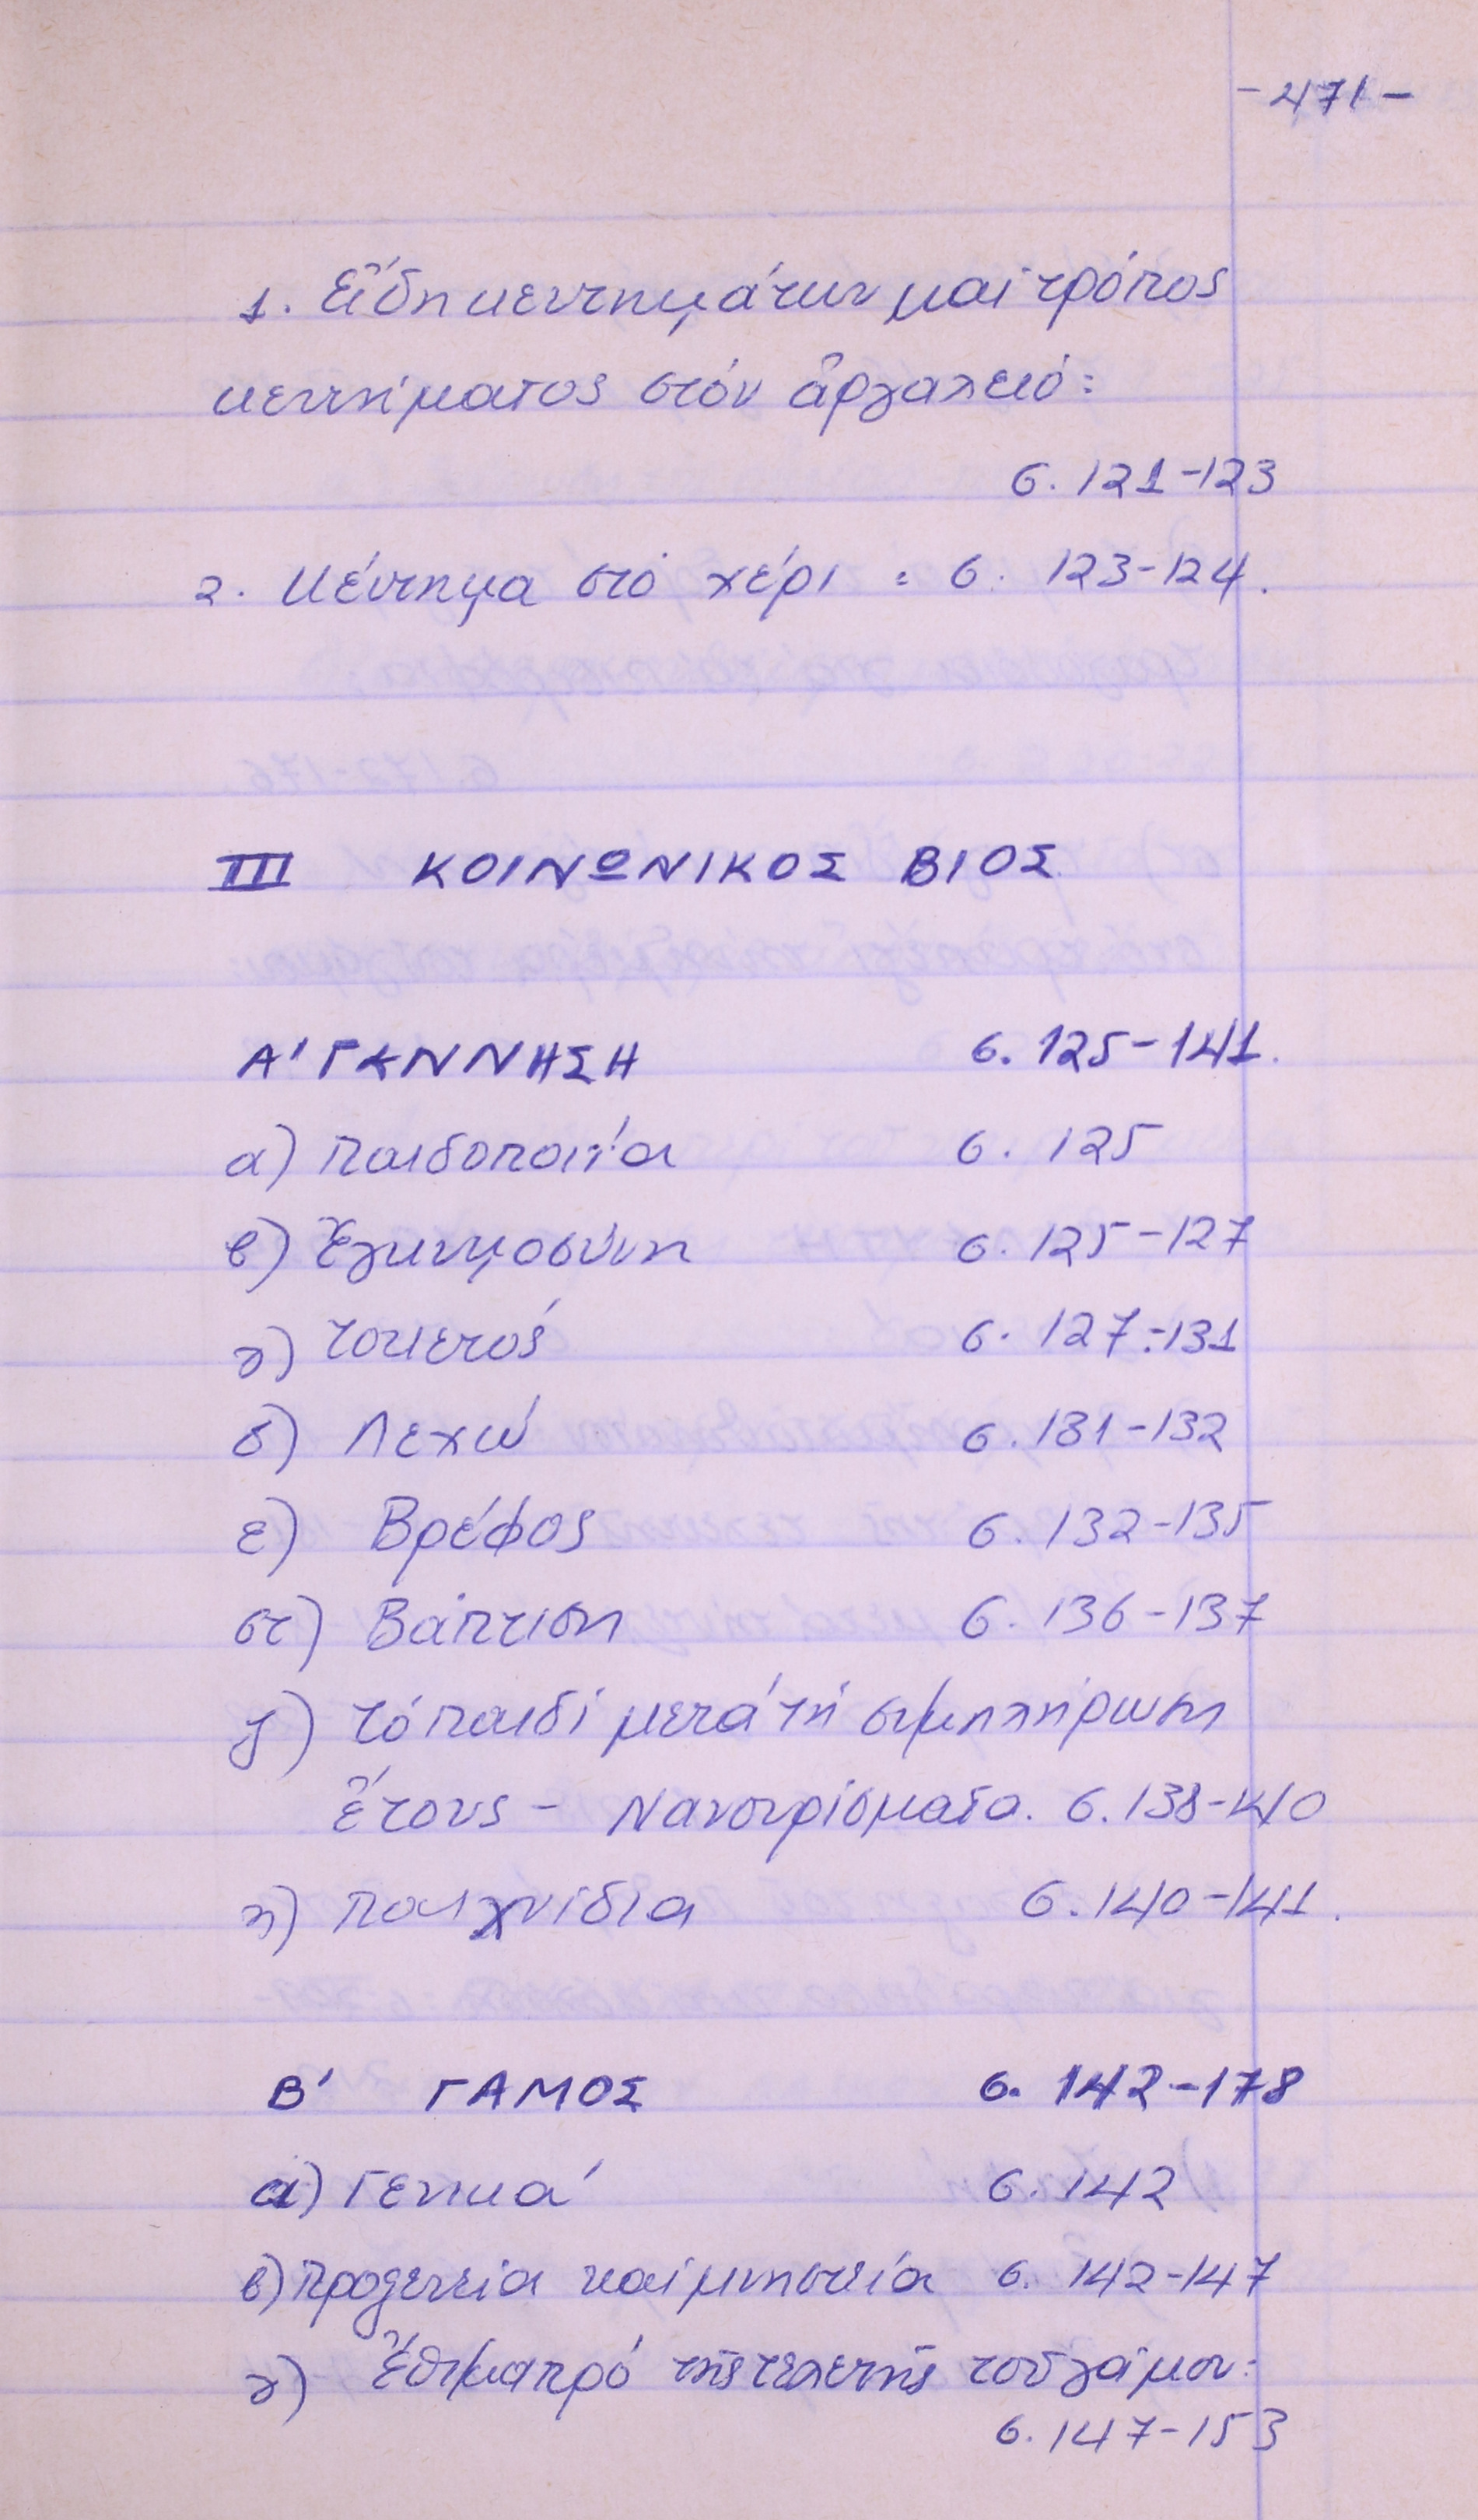 -471-
1. Εἴδη κεντημάτων καί τρόπος
κεντήματος στόν ἀργαλειό:
σ. 121-123
2. Κέντημα στό χέρι : σ. 123-124.
III ΚΟΙΝΩΝΙΚΟΣ ΒΙΟΣ
Α' ΓΕΝΝΗΣΗ σ. 125-141.
α) Παιδοποιία σ. 125
β) Ἐγκυμοσύνη σ. 125-127
γ) Τοκετός σ. 127-131
δ) Λεχώ σ. 131-132
ε) Βρέφος σ. 132-135
στ) Βάπτιση σ. 136-137
ζ) Τό παιδί μετά τή συμπλήρωση
ἔτους - Νανουρίσματα. σ. 138-140
η) Παιχνίδια σ. 140-141.
Β' ΓΑΜΟΣ σ. 142-178
α) Γενικά σ. 142
β) Προξενεία καί μνηστεία σ. 142-147
γ) Ἔθιμα πρό τῆς τελετῆς τοῦ γάμου:
σ. 147-153